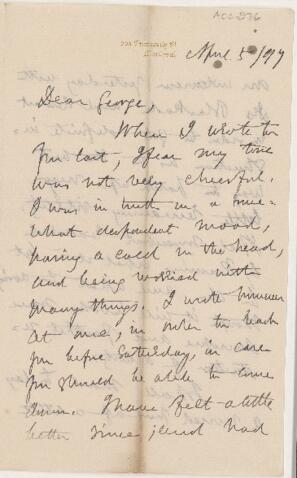 ACC 276
University St
Montreal
April 5/97
Dear George,
When I wrote to
you last, I fear my tone
was not very cheerful.
I was in truth in a some-
what despondent mood,
having a cold in the head,
and being worried with
many things. I wrote however
at once, in order to reach
you before Saturday, in case
you should be able to come
down. I have felt a little
better since, and had